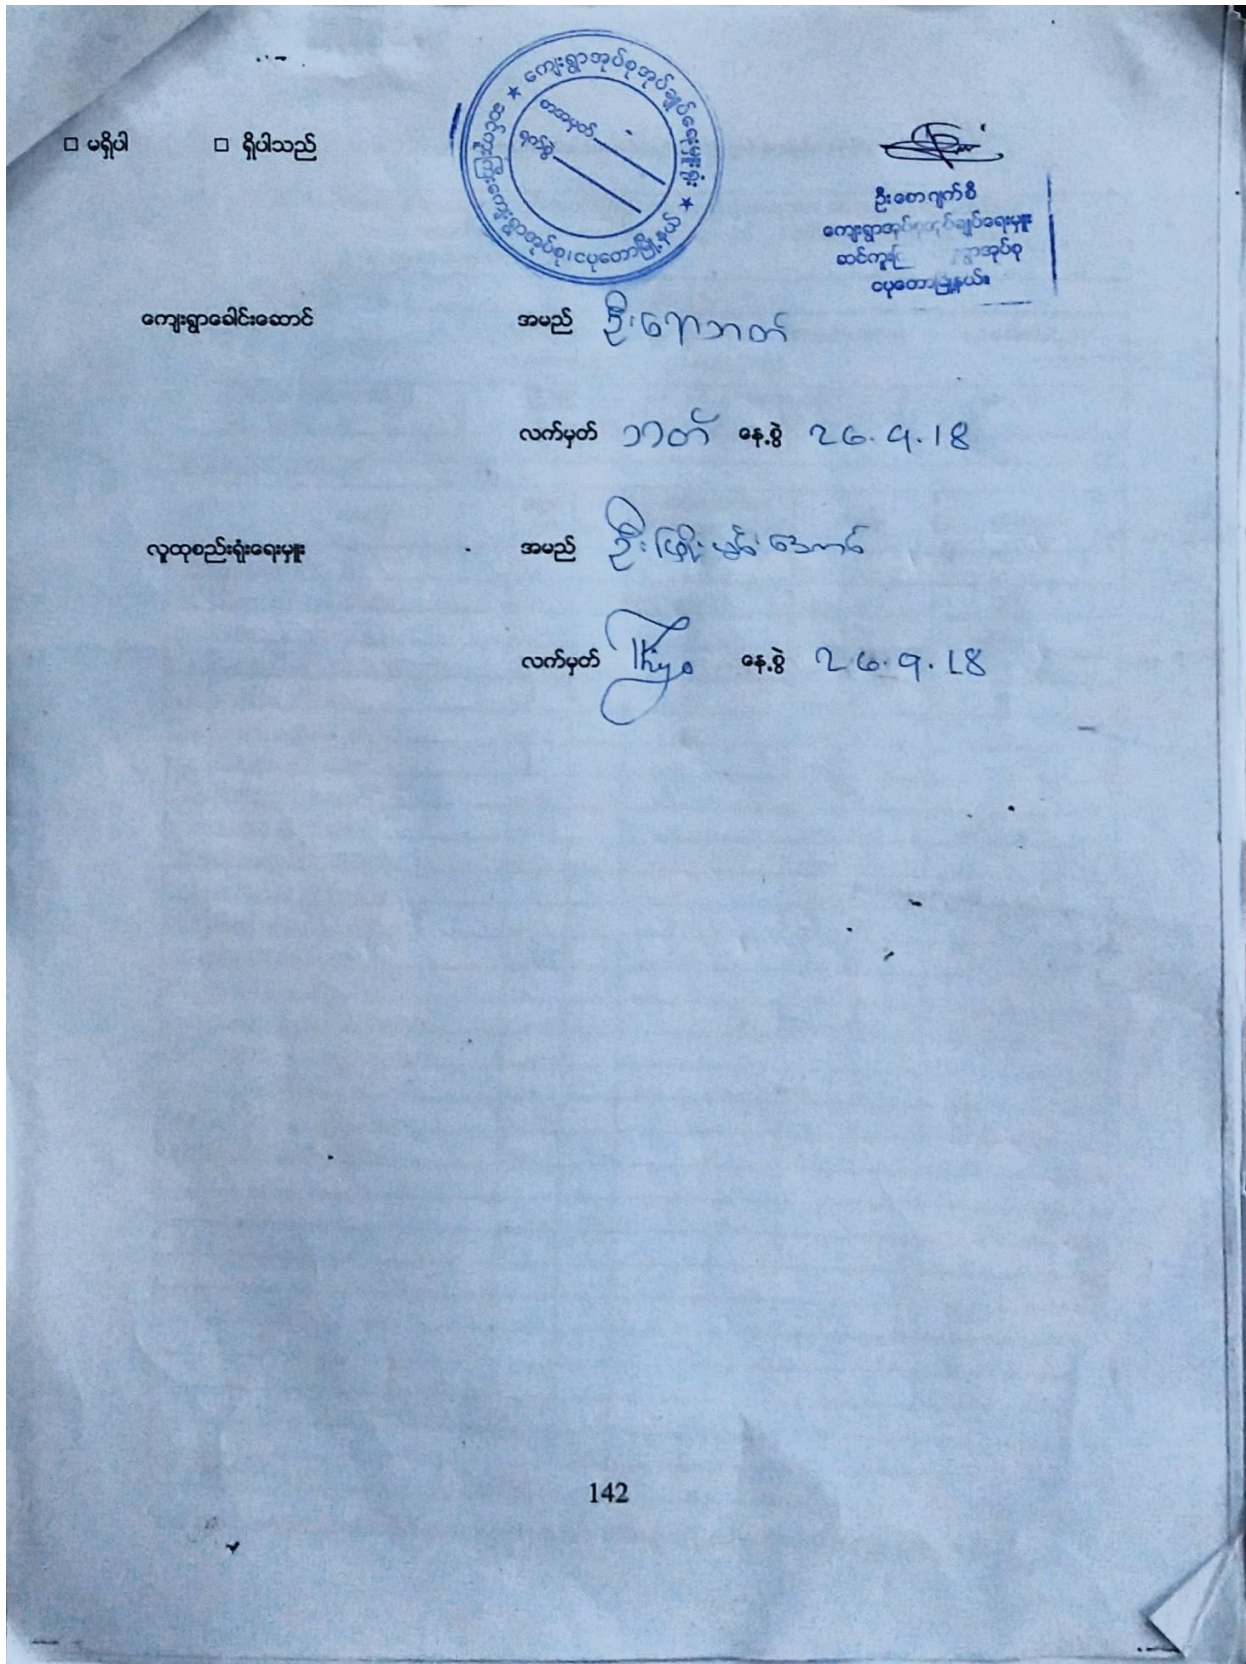 □ မရှိပါ □ ရှိပါသည်
★ ကျေးရွာအုပ်စုအုပ်ချုပ်ရေးမှူးရုံး ★
ကျေးရွာအုပ်စု၊ ငပုတောမြို့နယ်
စာအမှတ်
ရက်စွဲ
ဦးစောဂျက်စီ
ကျေးရွာအုပ်စုအုပ်ချုပ်ရေးမှူး
ရွာအုပ်စု
ငပုတောမြို့နယ်။
ကျေးရွာခေါင်းဆောင် အမည် ဦးရောဘတ်
လက်မှတ် ဘတ် နေ့စွဲ ၂၆.၅.18
လူထုစည်းရုံးရေးမှူး အမည် ဦးဖြိုးမင်းအောင်
လက်မှတ် နေ့စွဲ
142